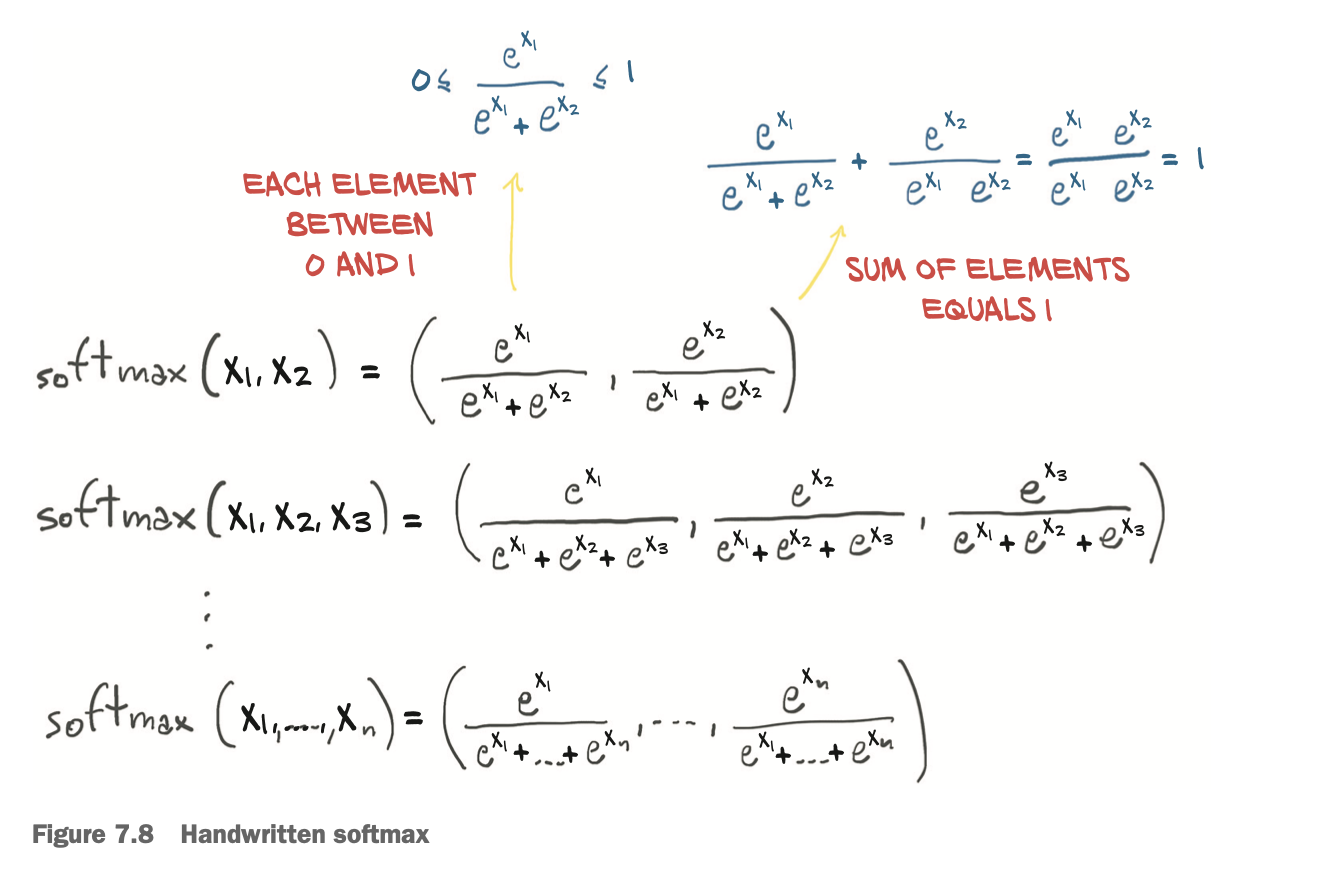 0 ≤ e^x₁ / (e^x₁ + e^x₂) ≤ 1
e^x₁ / (e^x₁ + e^x₂) + e^x₂ / (e^x₁ e^x₂) = (e^x₁ e^x₂) / (e^x₁ e^x₂) = 1
EACH ELEMENT
BETWEEN
0 AND 1
SUM OF ELEMENTS
EQUALS 1
softmax (x₁, x₂) = ( e^x₁ / (e^x₁ + e^x₂) , e^x₂ / (e^x₁ + e^x₂) )
softmax (x₁, x₂, x₃) = ( e^x₁ / (e^x₁ + e^x₂ + e^x₃) , e^x₂ / (e^x₁ + e^x₂ + e^x₃) , e^x₃ / (e^x₁ + e^x₂ + e^x₃) )
⋮
softmax (x₁, ..., xₙ) = ( e^x₁ / (e^x₁ + ... + e^xₙ) , ... , e^xₙ / (e^x₁ + ... + e^xₙ) )
Figure 7.8 Handwritten softmax